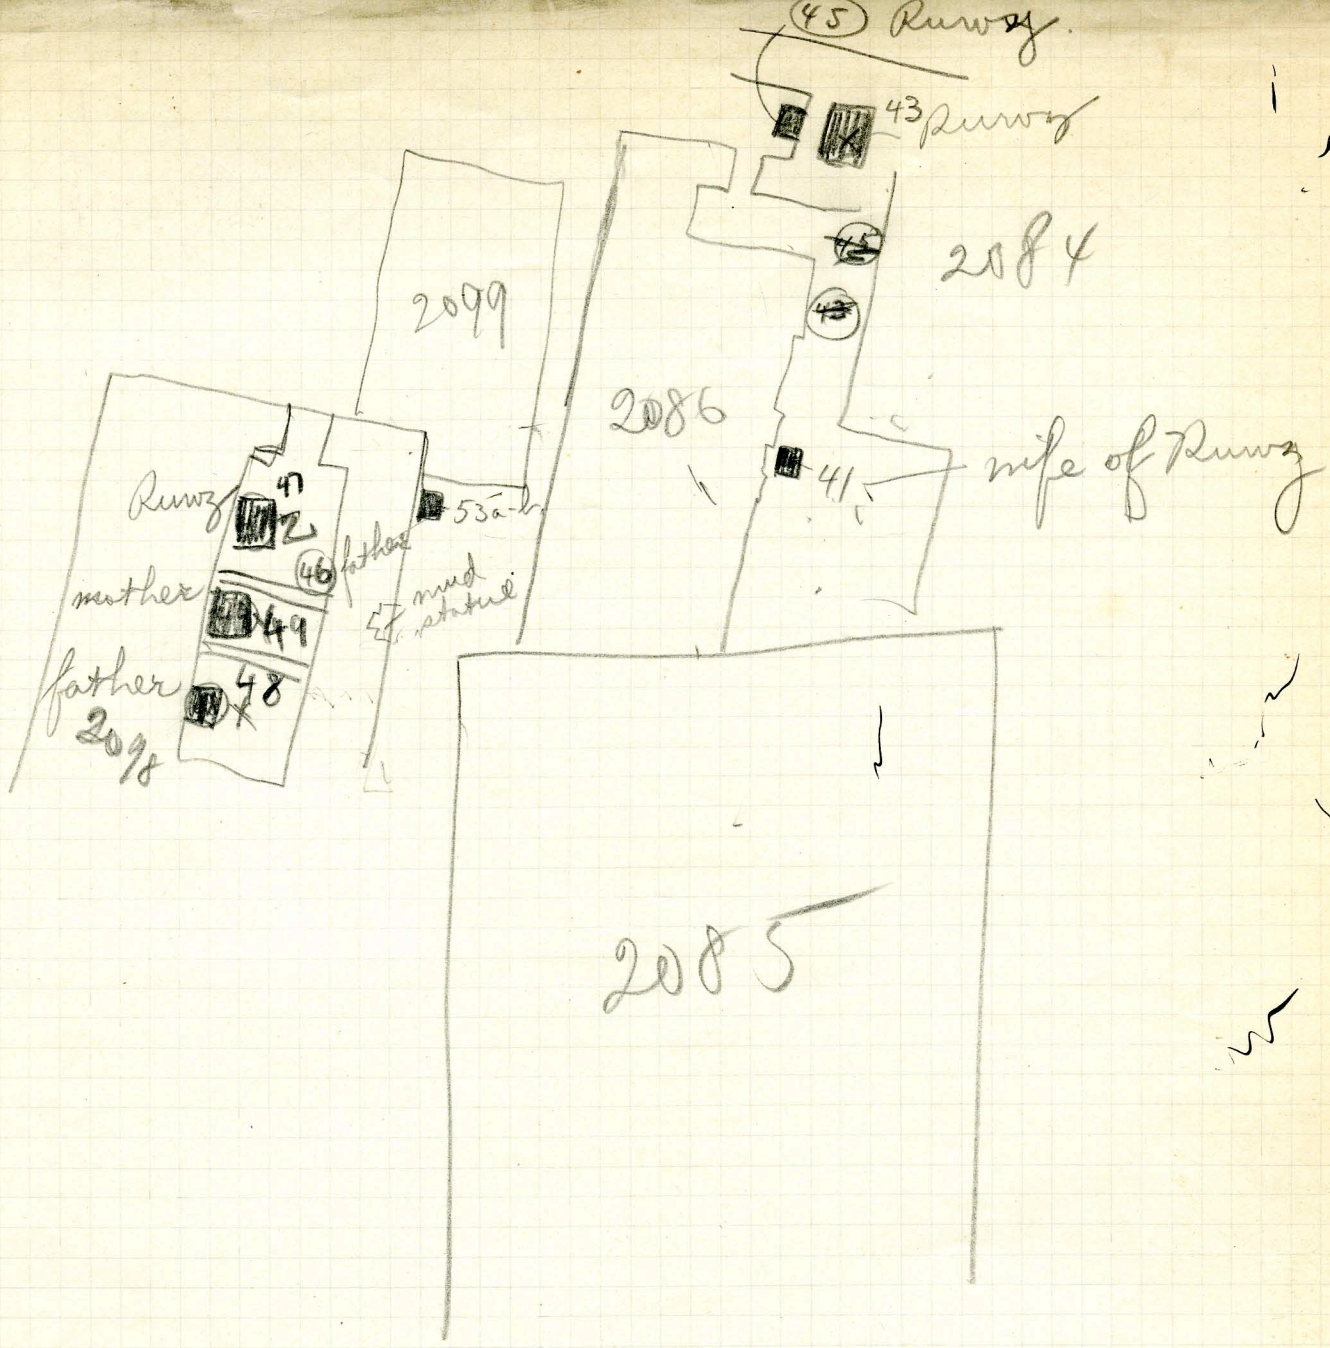 45 Ruwz.
43 Ruwz
45
2084
2099
43
2086
41 wife of Ruwz
Ruwz 47
53a-b.
46 father
mother
49
mud
statue
father 48
2098
2085